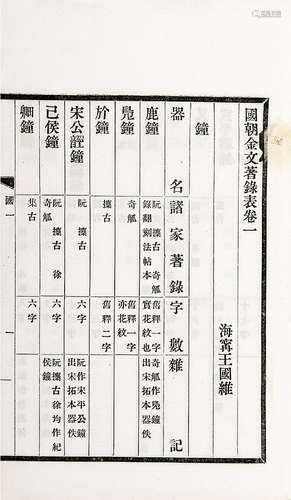 國朝金文著錄表卷一
海甯王國維
鐘
器名 諸家著錄 字數 雜記
鹿鐘 阮 攈古 奇觚 錄翻刻法帖本 舊釋一字 實花紋也 奇觚作鳧鐘 出宋拓本器佚
鳧鐘 奇觚 舊釋一字 亦花紋
於鐘 攈古 舊釋二字
宋公䛔鐘 阮 攈古 六字 阮作宋平公鐘 出宋拓本器佚
己侯鐘 阮 攈古 徐 奇觚 六字 阮攈古徐均作紀侯鐘
鐘 集古 六字
國一
一